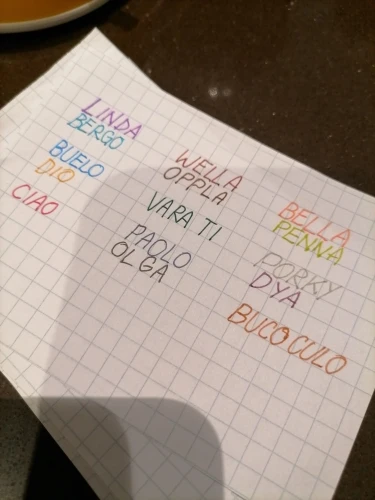 LINDA
BERGO
BUELO
DIO
CIAO
WELLA
OPPLA
VARA TI
PAOLO
OLGA
BELLA
PENNA
PORKY
DYA
BUCO CULO